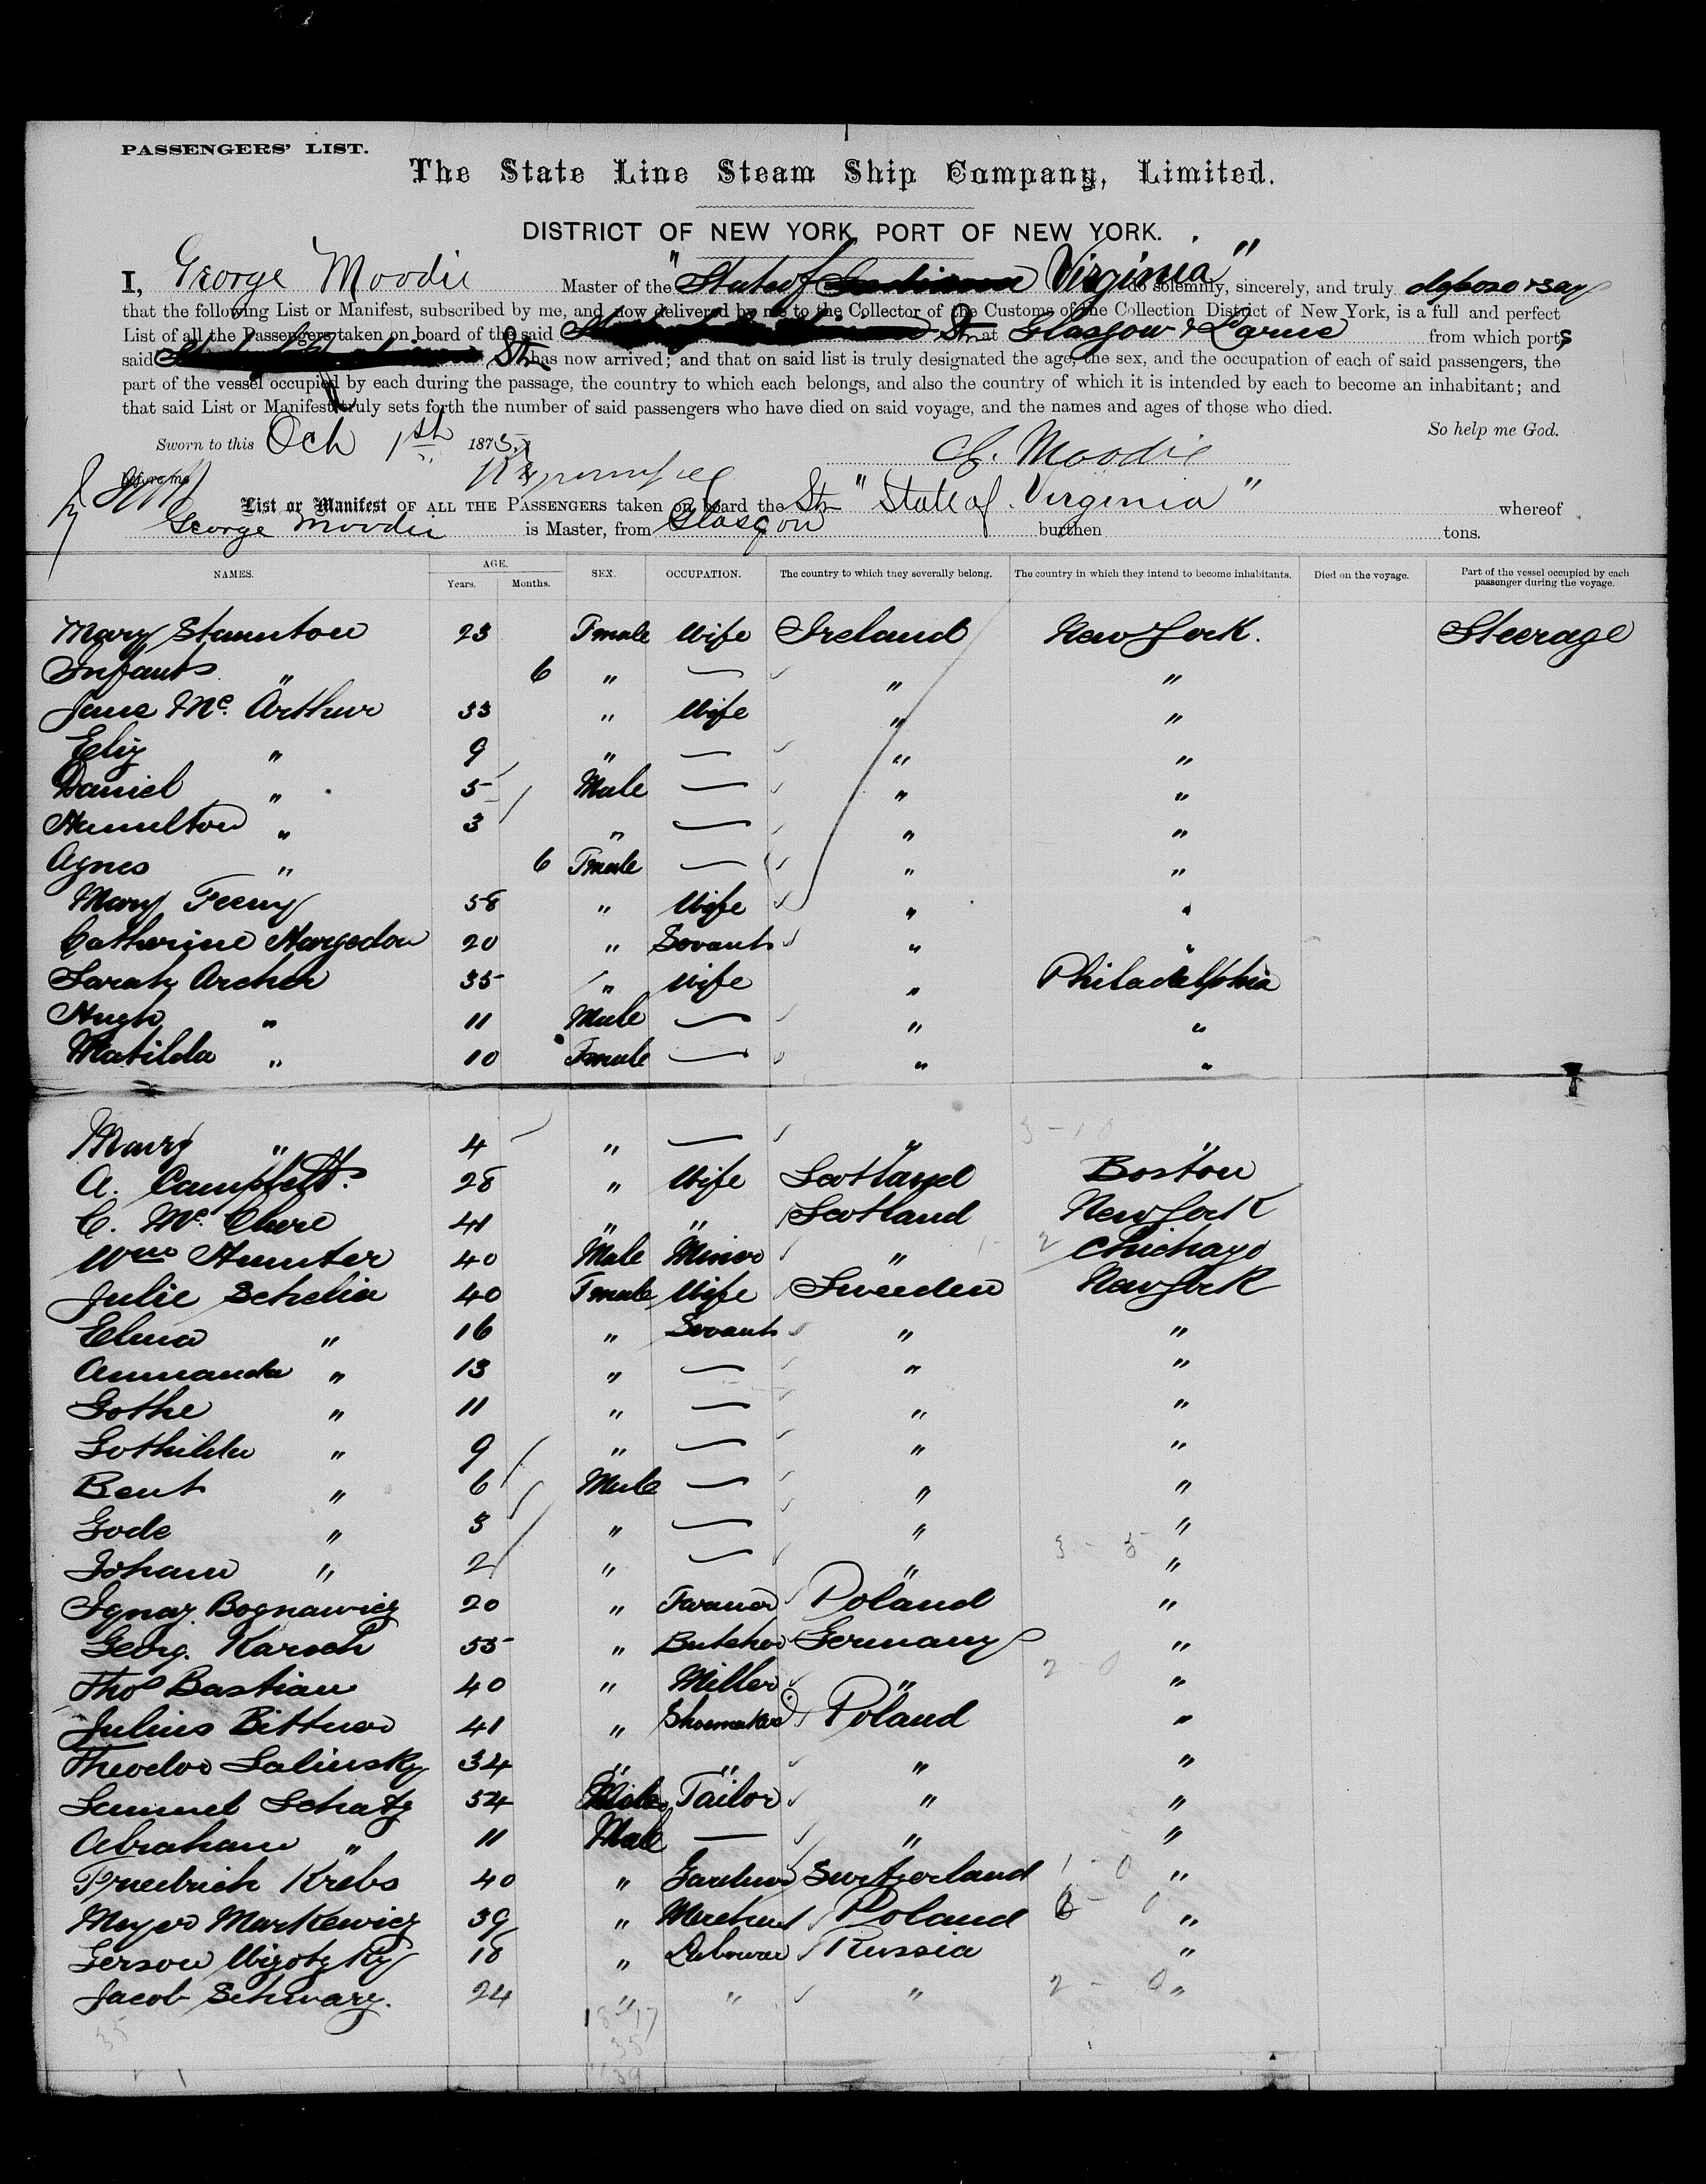 PASSENGERS' LIST.
The State Line Steam Ship Company, Limited.
DISTRICT OF NEW YORK, PORT OF NEW YORK.
I, George Moodie Master of the "State of Indiana Virginia" do solemnly, sincerely, and truly depose & say
that the following List or Manifest, subscribed by me, and now delivered by me to the Collector of the Customs of the Collection District of New York, is a full and perfect
List of all the Passengers taken on board of the said Str at Glasgow & Larne from which ports
said Str has now arrived; and that on said list is truly designated the age, the sex, and the occupation of each of said passengers, the
part of the vessel occupied by each during the passage, the country to which each belongs, and also the country of which it is intended by each to become an inhabitant; and
that said List or Manifest truly sets forth the number of said passengers who have died on said voyage, and the names and ages of those who died.
So help me God.
Sworn to this Oct 1st 1875 G. Moodie
Before me
List or Manifest OF ALL THE PASSENGERS taken on board the Str "State of Virginia" whereof
George Moodie is Master, from Glasgow burthen tons.
NAMES. AGE. Years. Months. SEX. OCCUPATION. The country to which they severally belong. The country in which they intend to become inhabitants. Died on the voyage. Part of the vessel occupied by each passenger during the voyage.
Mary Staunton 23 Fmale Wife Ireland New York. Steerage
Infants " 6 " — " "
Jane Mc Arthur 33 " Wife " "
Eliz " 9 " — " "
Daniel " 5 Male — " "
Hamilton " 3 " — " "
Agnes " 6 Fmale — " "
Mary Feeny 58 " Wife " "
Catherine Hargedon 20 " Servant " "
Sarah Archer 35 " Wife " Philadelphia
Hugh " 11 Male — " "
Matilda " 10 Fmale — " "
Mary " 4 " — " "
A. Campbell 28 " Wife Scotland Boston
C. Mc Clure 41 " " Scotland New York
Wm Hunter 40 Male Miner " Chichago
Julie Schelin 40 Fmale Wife Sweeden New York
Elma " 16 " Servant " "
Ammanda " 13 " — " "
Gothe " 11 " — " "
Gothilda " 9 " — " "
Bent " 6 Male — " "
Gode " 3 " — " "
Johann " 2 " — " "
Ignaz Bognawicz 20 " Farmer Poland "
Georg. Karsch 55 " Butcher Germany "
Thos Bastian 40 " Miller " "
Julius Bittner 41 " Shoemaker Poland "
Theodor Salinsky 34 " " " "
Samuel Schatz 54 Male Tailor " "
Abraham " 11 Male — " "
Friedrich Krebs 40 " Gardener Switzerland "
Meyer Markewicz 39 " Merchant Poland "
Gerson Wigotzky 18 " Labourer Russia "
Jacob Schwarz. 24 " " " "